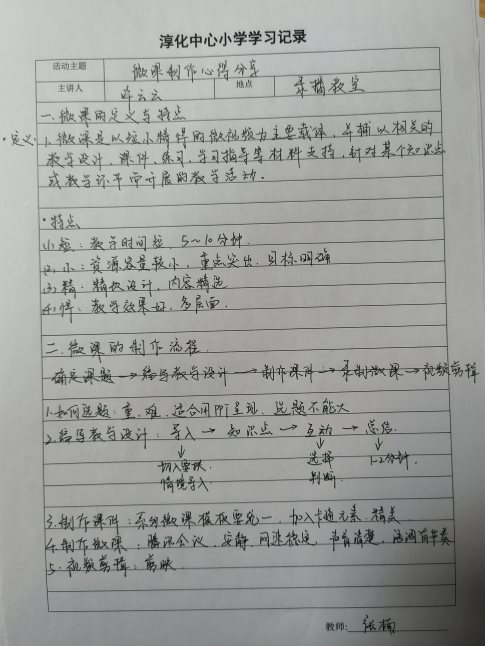 淳化中心小学学习记录
活动主题 微课制作心得分享
主讲人 云云 地点 录播教室
一.微课的定义与特点
·定义: 1.微课是以短小精悍的微视频为主要载体,并辅以相关的
教学设计、课件、练习、学习指导等材料支持,针对某个知识点
或教学环节而开展的教学活动.
·特点
(1)短:教学时间短,5~10分钟.
(2)小:资源容量较小,重点突出,目标明确
(3)精:精致设计,内容精选
(4)悍:教学效果好,多层面.
二.微课的制作流程.
确定课题→编写教学设计→制作课件→录制微课→视频剪辑
1.如何选题:重、难、适合用PPT呈现,选题不能大
2.编写教学设计:导入→知识点→互动→总结.
↓ ↓ ↓
切入要快. 选择 1-2分钟.
情境导入. 判断
3.制作课件:系列微课模板要统一,加入卡通元素.精美.
4.制作微课:腾讯会议、安静、网速稳定、声音清楚,
5.视频剪辑:剪映.
教师: 张楠